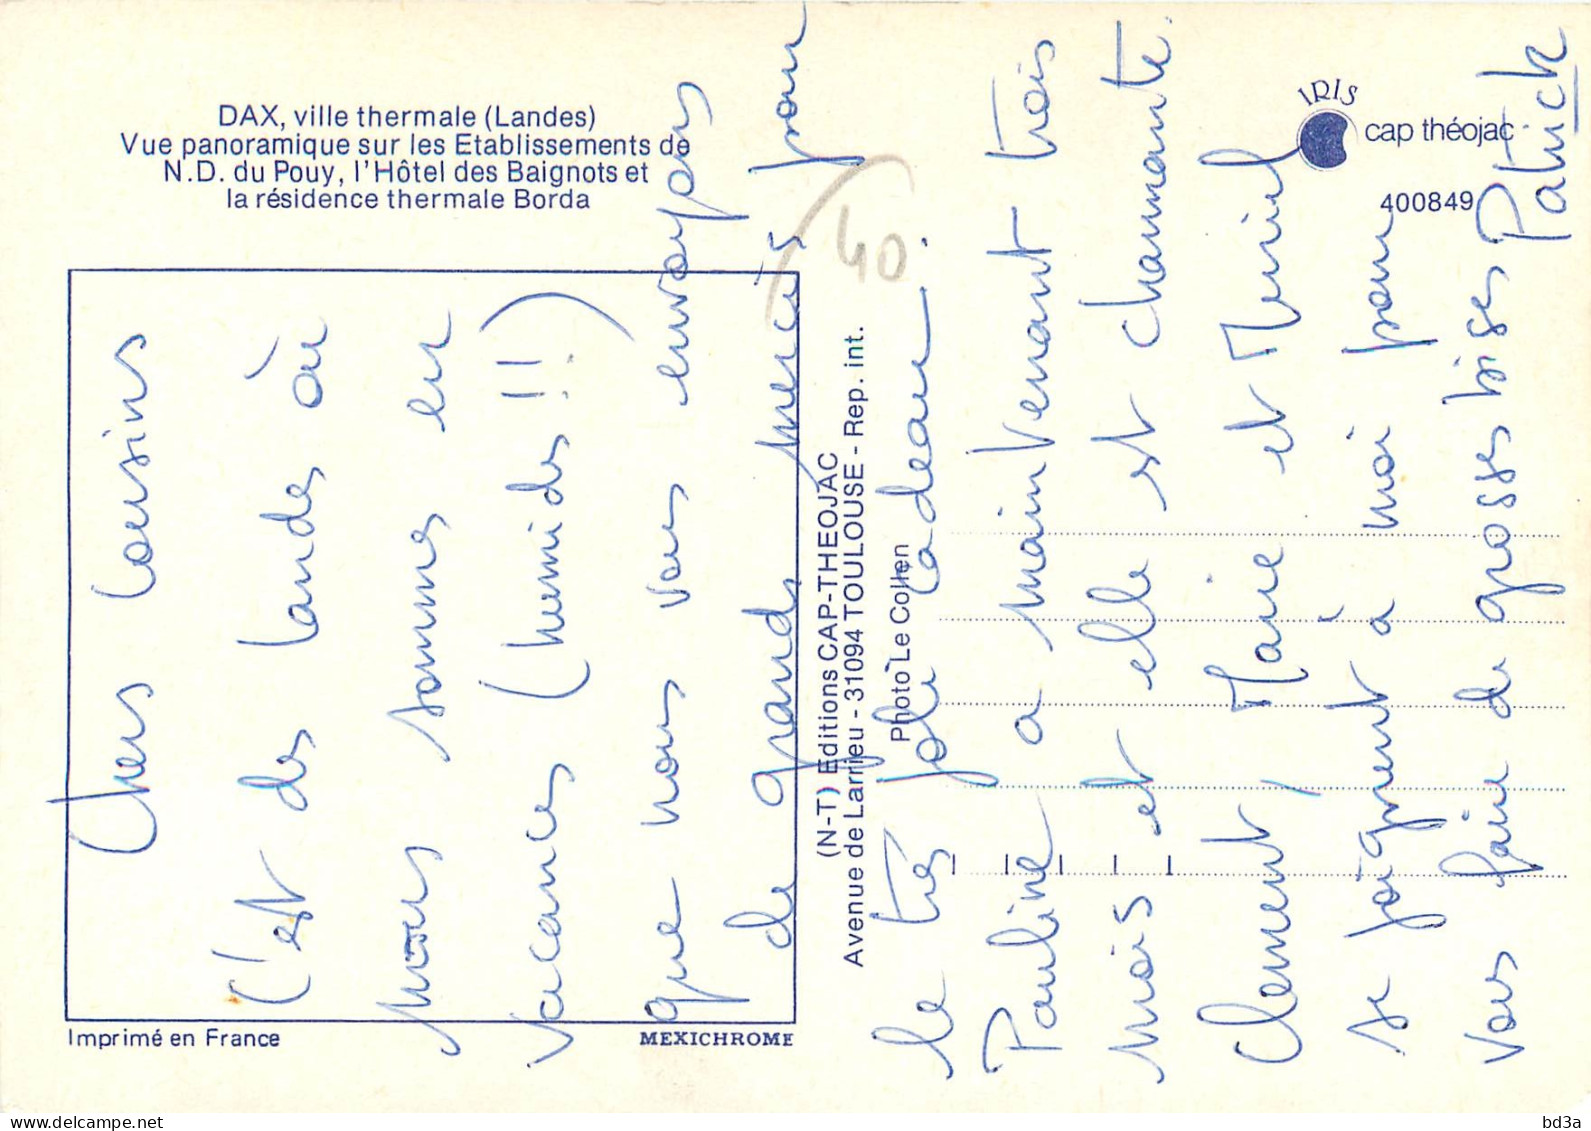 DAX, ville thermale (Landes)
Vue panoramique sur les Etablissements de
N.D. du Pouy, l'Hôtel des Baignots et
la résidence thermale Borda
IRIS
cap théojac
400849
40
Chers Cousins
C'est des Landes où
nous sommes en
vacances (humides !!)
que nous vous envoyons
de grands mercis pour
le très joli cadeau.
Pauline a maintenant trois
mois et elle est charmante.
Clément, Marie et Muriel
se joignent à moi pour
vous faire de grosses bises
Patrick
(N-T) Editions CAP-THEOJAC
Avenue de Larrieu - 31094 TOULOUSE - Rep. int.
Photo Le Collen
Imprimé en France
MEXICHROME
delcampe.net
bd3a